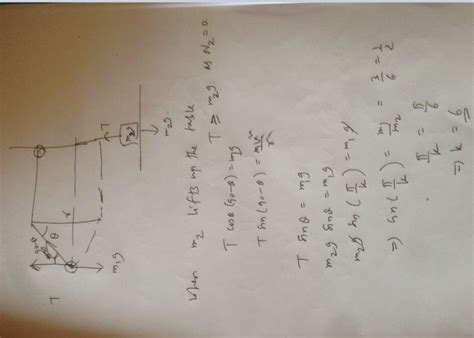 T
90-θ
θ
r
m₁g
T
m₂
m₂g
when m₂ lifts up the table
T ≥ m₂g as N₂=0.
T cosθ (90-θ) = m₁g
T sin (90-θ) =
T sinθ = m₁g
m₂g sinθ = m₁g
m₂g sin (π/k) = m₁g
⇒ sin (π/k) = m₁/m₂ = 3/6 = 1/2
π/k = π/6
⇒ k = 6